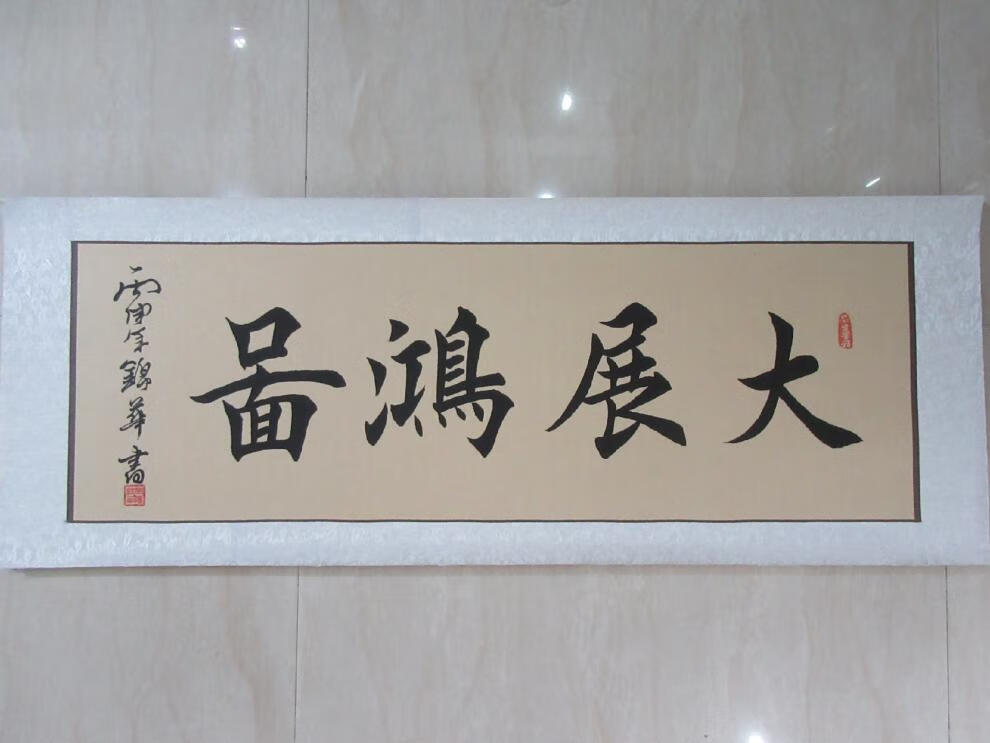 大展鴻啚
丙申年錦華書